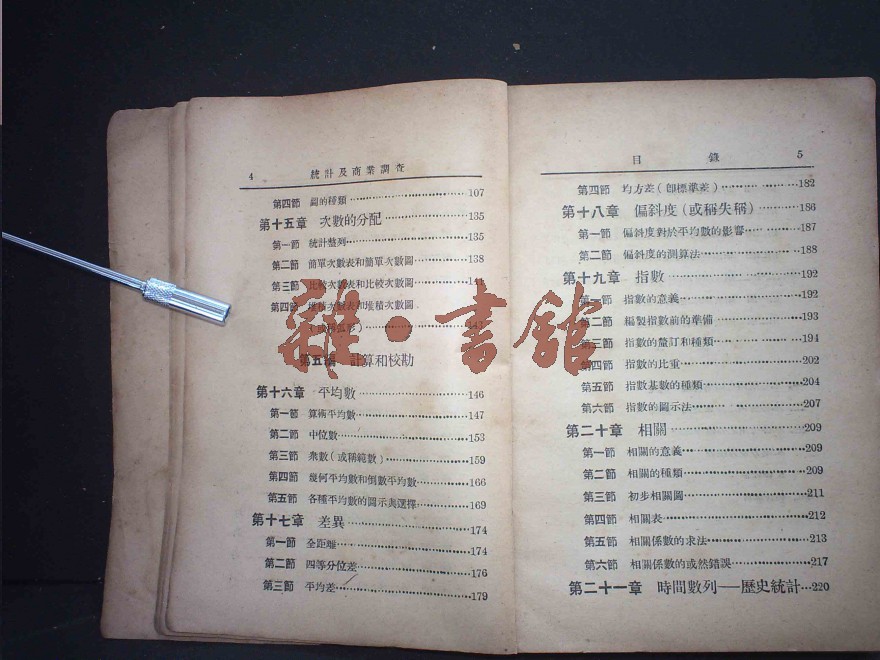 4 統計及商業調查
第四節 圖的種類 107
第十五章 次數的分配 135
第一節 統計整列 135
第二節 簡單次數表和簡單次數圖 138
第三節 比較次數表和比較次數圖
第四節 堆積次數表和堆積次數圖
第五編 計算和校勘
第十六章 平均數 146
第一節 算術平均數 147
第二節 中位數 153
第三節 衆數(或稱範數) 159
第四節 幾何平均數和倒數平均數 166
第五節 各種平均數的圖示與選擇 169
第十七章 差異 174
第一節 全距離 174
第二節 四等分位差 176
第三節 平均差 179
目錄 5
第四節 均方差(卽標準差) 182
第十八章 偏斜度(或稱失稱) 186
第一節 偏斜度對於平均數的影響 187
第二節 偏斜度的測算法 188
第十九章 指數 192
第一節 指數的意義 192
第二節 編製指數前的準備 193
第三節 指數的釐訂和種類 194
第四節 指數的比重 202
第五節 指數基數的種類 204
第六節 指數的圖示法 207
第二十章 相關 209
第一節 相關的意義 209
第二節 相關的種類 209
第三節 初步相關圖 211
第四節 相關表 212
第五節 相關係數的求法 213
第六節 相關係數的或然錯誤 217
第二十一章 時間數列——歷史統計 220
雜·書館